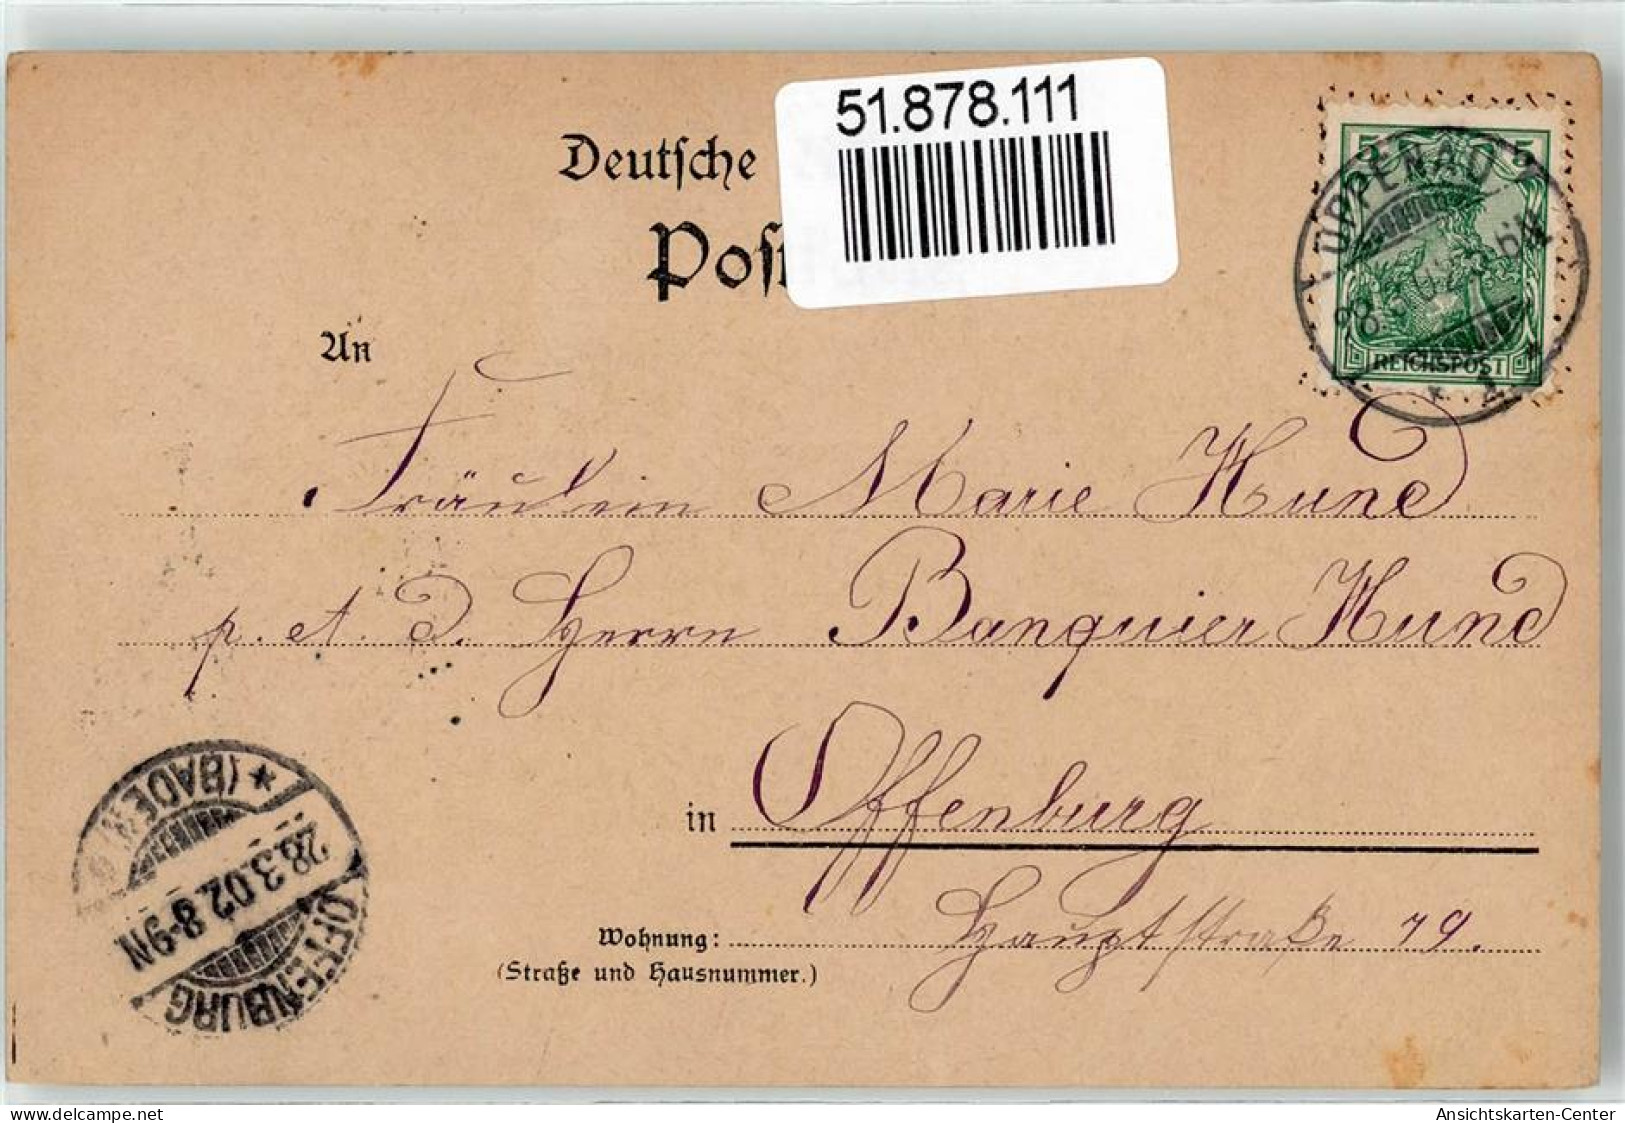 51.878.111
Deutsche
Post
An
5 5
OPPENAU
28.3.02. 5-6N
REICHSPOST
Fräulein Marie Hund
p. Ad. Herrn Banquier Hund
in Offenburg
Wohnung: Hauptstraße 79.
(Straße und Hausnummer.)
OFFENBURG
28.3.02.8-9N.
* (BADEN)
www.delcampe.net
Ansichtskarten-Center